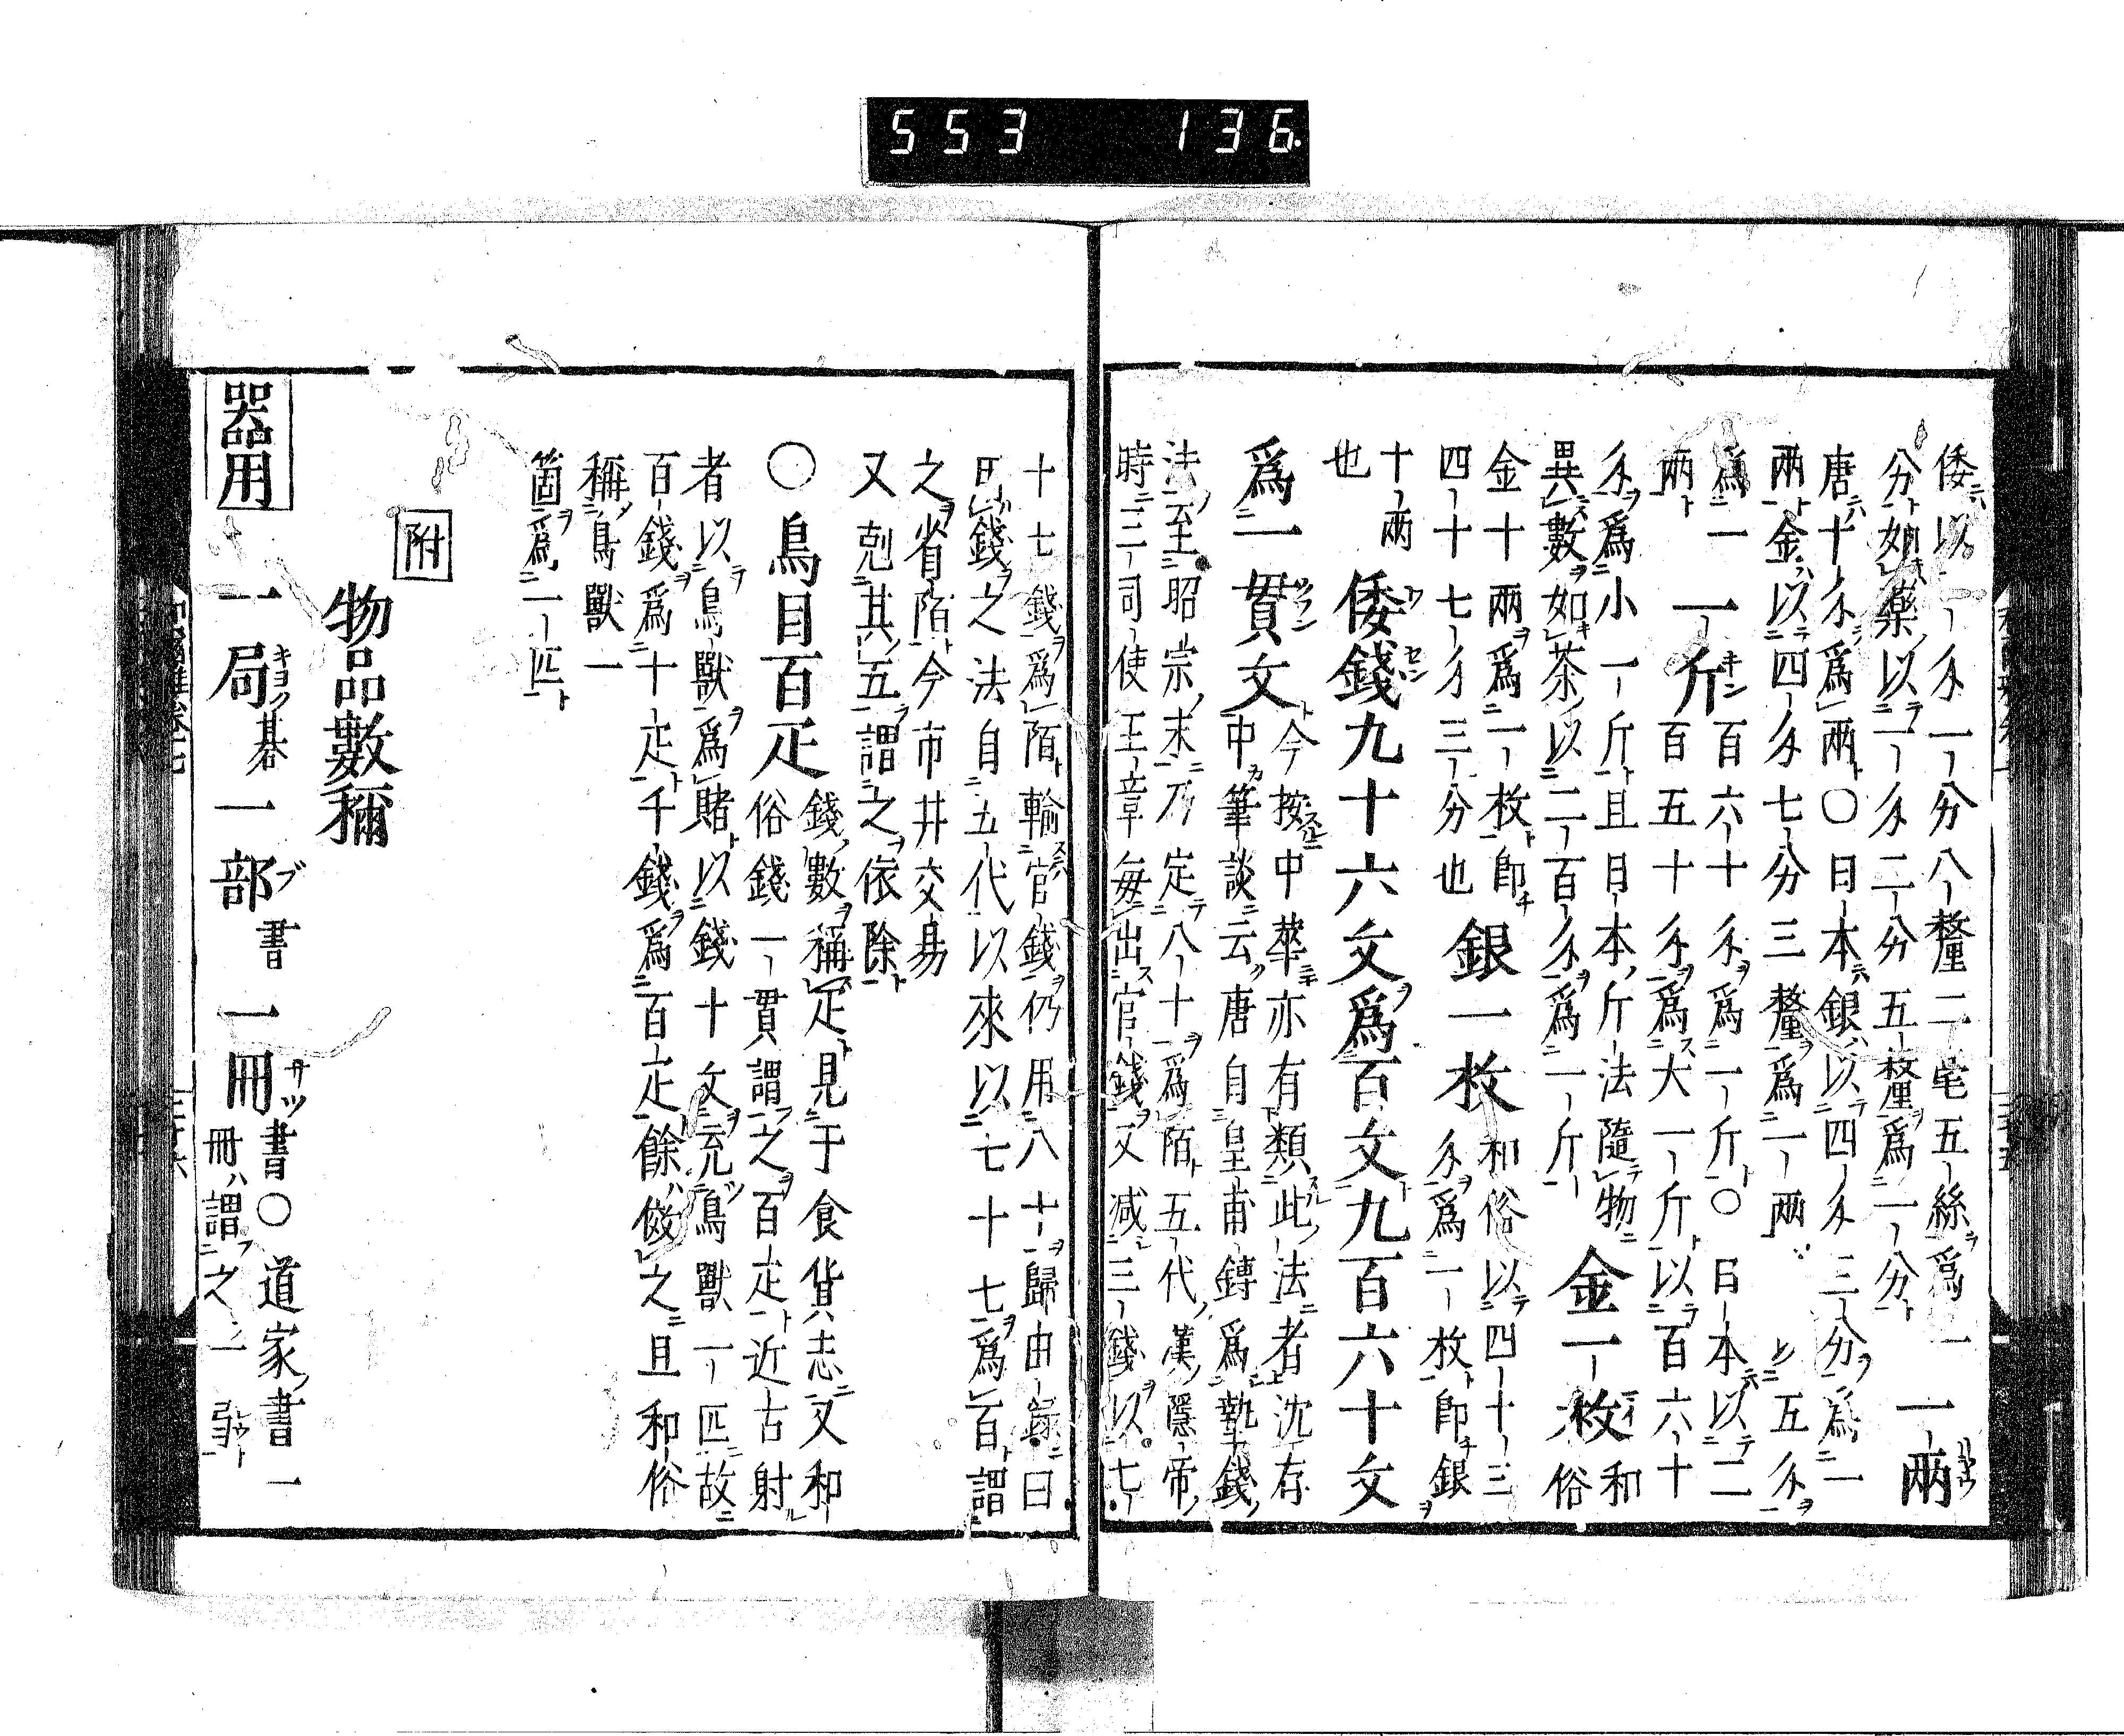 553 136
倭以一匁一分八釐二毫五絲爲一
分如藥以一匁二分五釐爲一分
一兩
唐十匁爲兩〇日本銀以四匁三分爲一
兩金以四匁七分三釐爲一兩
五匁
爲一
兩
一斤
百六十匁爲一斤〇日本以二
百五十匁爲大一斤以百六十
匁爲小一斤且日本斤法隨物
異數如茶以二百匁爲一斤
金一枚
和
俗
金十兩爲一枚即
四十七匁三分也
銀一枚
和俗以四十三
匁爲一枚即銀
十兩
也
倭錢九十六文爲百文九百六十文
爲一貫文
今按中華亦有類此法者沈存
中筆談云唐自皇甫鎛爲墊錢
法至昭宗末乃定八十爲陌五代漢隱帝
時三司使王章每出官錢又減三錢以七
十七錢爲陌輸官錢仍用八十歸田錄曰
用錢之法自五代以來以七十七爲百謂
之省陌今市井交易
又剋其五謂之依除
〇鳥目百疋
錢數稱疋見于食貨志又和
俗錢一貫謂之百疋近古射
者以鳥獸爲賭以錢十文充鳥獸一匹故
百錢爲十疋千錢爲百疋餘倣之且和俗
稱鳥獸一
箇爲一匹
附
物品數稱
器用
一局
碁
一部
書
一冊
書〇道家書一
冊謂之一弓